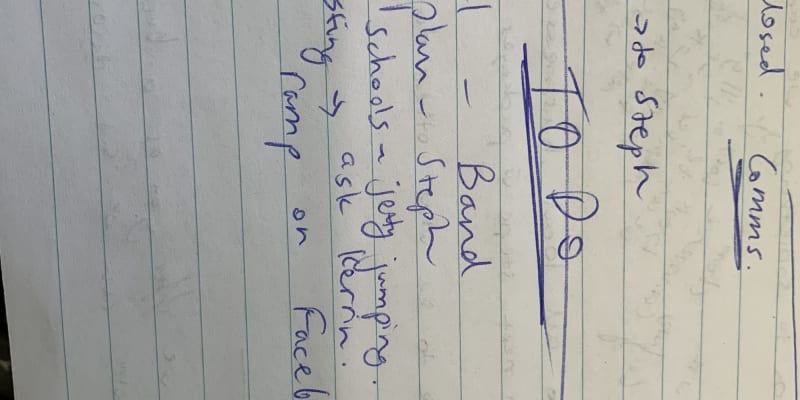 losed. Comms.
→ to Steph
TO DO
l - Band
plan - Steph
schools - jetty jumping.
sting → ask Kerrin.
ramp on Faceb